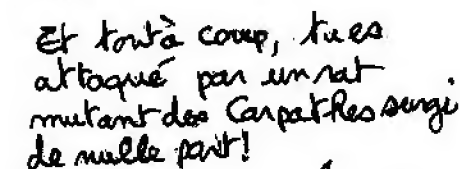 Et tout à coup, tu es
attaqué par un rat
mutant des Carpathes surgi
de nulle part!